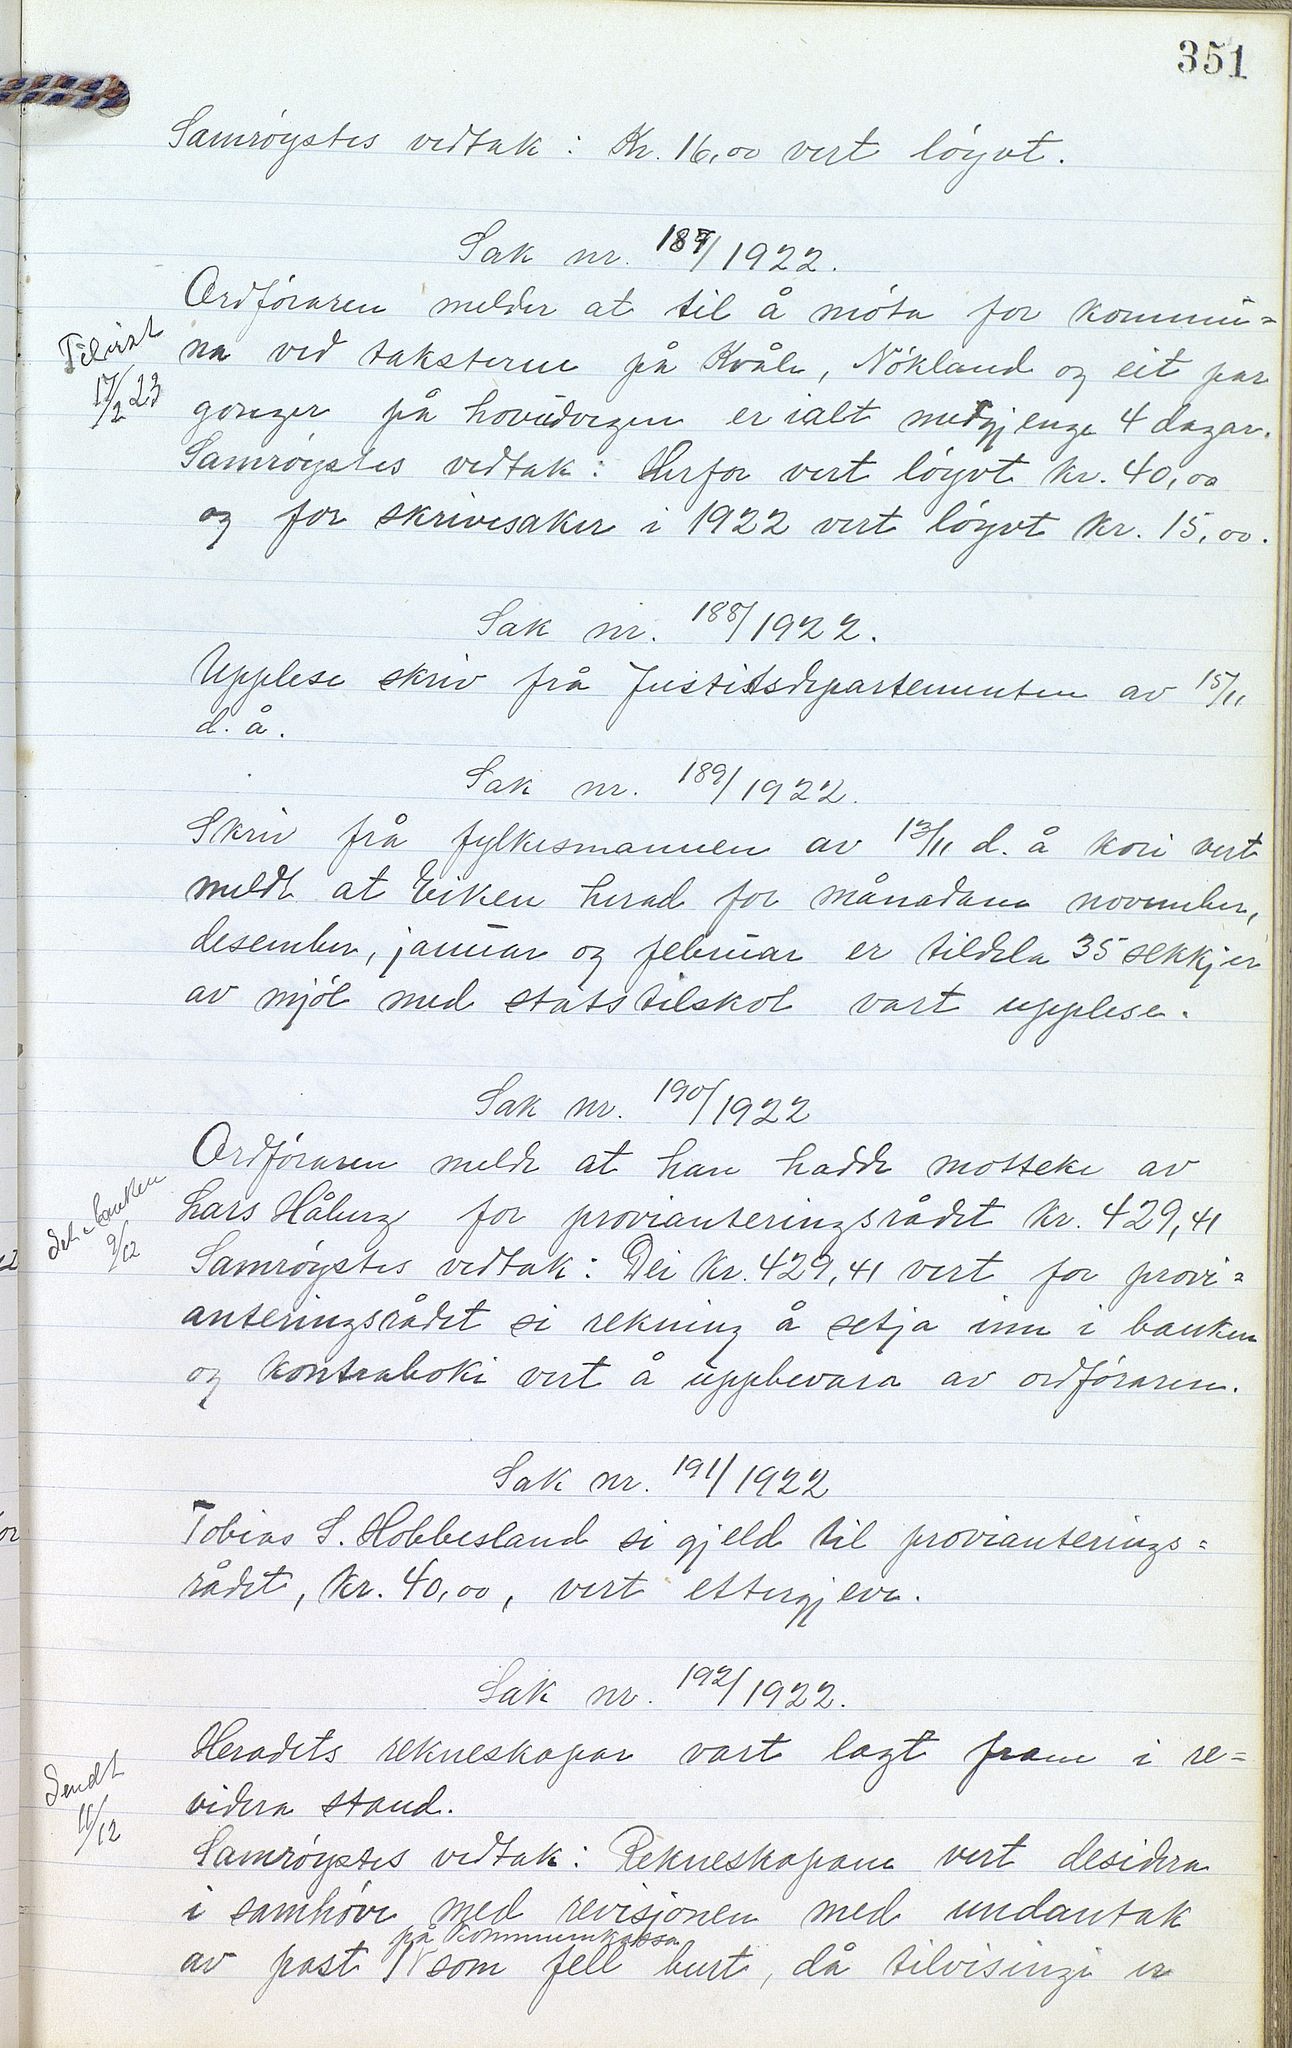 351
Samrøystes vedtak: Kr. 16,00 vert løyvt.
Sak nr. 187/1922.
Ordføraren melder at til å møta for kommu=
Tilvist
na ved taksterne på Kvåle, Nökland og eit par
17/2 23
gonger på hovudvegen er ialt medgjenge 4 dagar.
Samrøystes vedtak: Herfor vert løyvt kr. 40,00
og for skrivesaker i 1922 vert løyvt kr. 15,00.
Sak nr. 188/1922.
Upplese skriv frå Justitsdepartementen av 15/11
d. å.
Sak nr. 189/1922.
Skriv frå fylkesmannen av 13/11 d. å kori vert
meldt at Eiken herad for månadane november,
desember, januar og februar er tildela 35 sekkjer
av mjøl med statstilskot vart upplese.
Sak nr. 190/1922
Ordføraren melde at han hadde motteke av
Lars Håberg for provianteringsrådet kr. 429,41
banken
9/12
Samrøystes vedtak: Dei kr. 429,41 vert for provi=
anteringsrådet si rekning å setja inn i banken
og kontraboki vert å uppbevara av ordføraren.
Sak nr. 191/1922
Tobias S. Hobbesland si gjeld til provianterings=
rådet, kr. 40,00, vert ettergjeve.
Sak nr. 192/1922.
Heradets rekneskapar vart lagt fram i re=
Sendt
11/12
videra stand.
Samrøystes vedtak: Rekneskapane vert desidera
i samhøve med revisjonen med undantak
på kommunekassa
av post som fell burt, då tilvisingi er